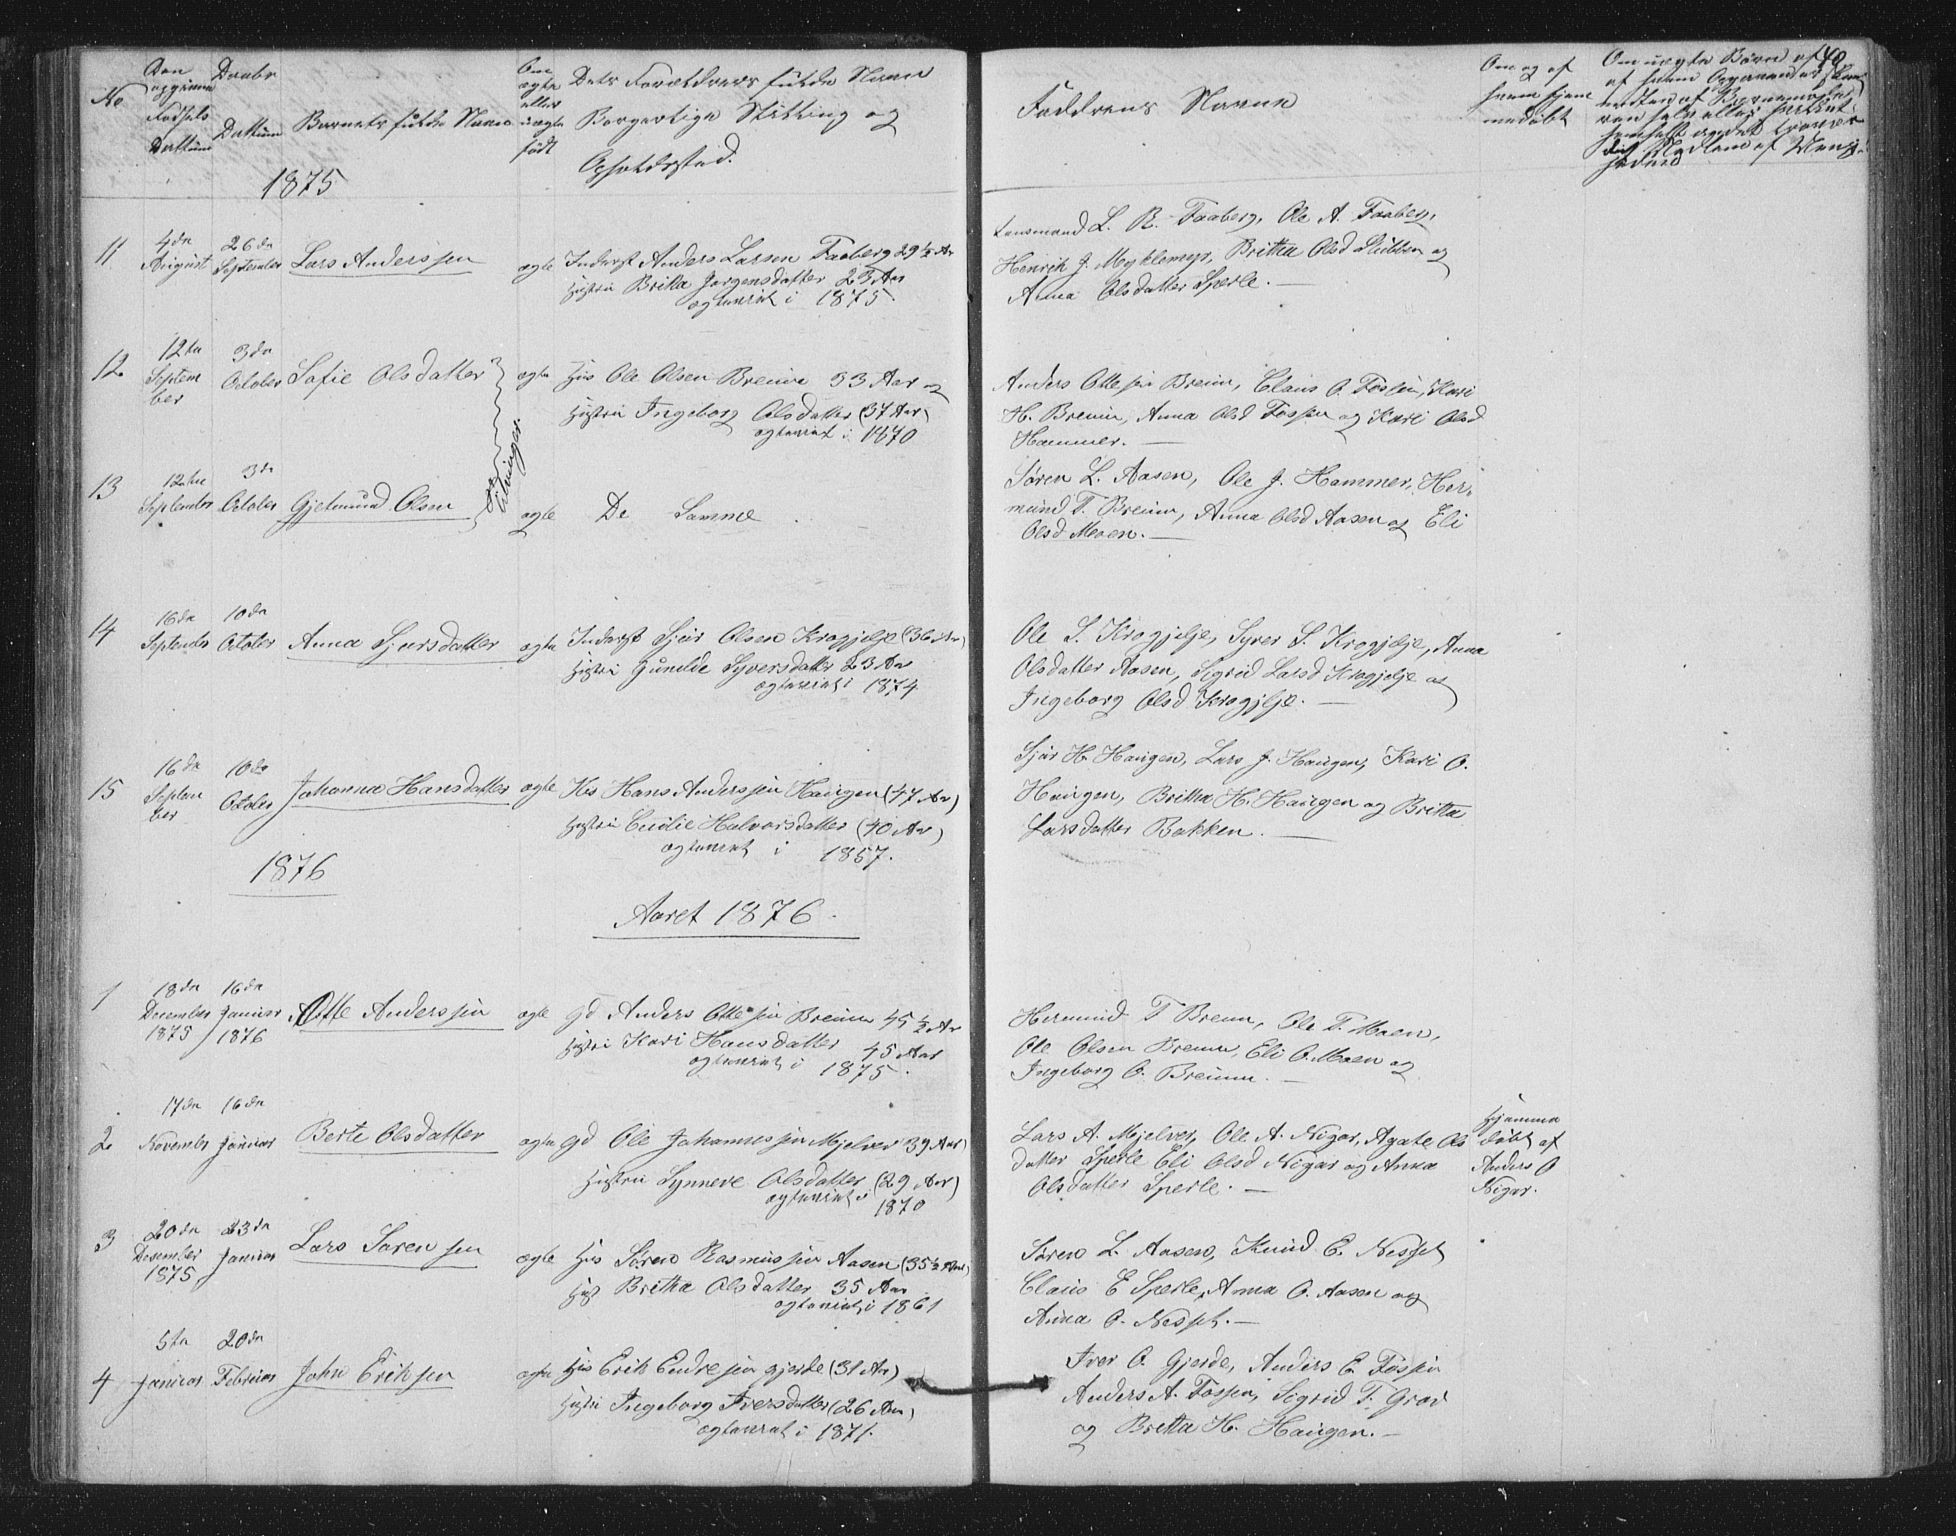 40
No
Den
opgivne
Fødsels
Dattum
Daabs
Dattum
Barnets fulde Navn
Om
ægte
eller
uægte
født
Dets Forældres fulde Navn
Borgerlige Stilling og
Opholdssted.
Faddrens Navne
Om og af
hvem hjem
medøbt
Om uægte Børn
1875
11
4de
August
26de
September
Lars Anderssen
ægte
Inderst Anders Larsen Faaberg 29½ Aar
Hustru Britta Jørgensdatter 23 Aar
ægteviet i 1875.
Lensmand L. R. Faaberg, Ole A. Faaberg,
Henrik J. Myklemyr, Britha Olsd Stubben og
Anna Olsdatter Sperle.
12
12te
Septem
ber
3de
October
Sofie Olsdatter
Tvillinger.
ægte
Hus Ole Olsen Breum 33 Aar og
Hustru Ingeborg Olsdatter (37 Aar)
ægteviet i 1870
Anders Ottessen Breum, Claus O. Fossen, Kari
H. Breum, Anna Olsd Fossen og Kari Olsd
Hammer.
13
12te
September
3de
October
Gjetmund Olsen
ægte
De Samme
Søren L. Aasen, Ole J. Hammer, Her-
mund T. Breum, Anna Olsd Aasen og Eli
Olsd Moen.
14
16de
September
10de
October
Anna Sjursdatter
ægte
Inderst Sjur Olsen Krogjelje (36 Aar)
Hustru Gunilde Syversdatter 23 Aar
ægteviet i 1874
Ole S. Krogjelje, Syver S. Krogjelje, Anna
Olsdatter Aasen, Sigrid Larsd Krogjelje og
Ingeborg Olsd Krogjelje.
15
16de
Septem
ber
10de
October
Johanna Hansdatter
ægte
Hus Hans Anderssen Haugen (47 Aar)
Hustru Cecilie Halvorsdatter (40 Aar)
ægteviet i 1857.
Sjur H. Haugen, Lars J. Haugen, Kari O.
Haugen, Britha H. Haugen og Britta
Larsdatter Bakken.
1876
Aaret 1876.
1
18de
December
1875
16de
Januar
1876
Otte Anderssen
ægte
Gd Anders Ottessen Breum 45½ Aar
Hustru Kari Hansdatter 45 Aar
ægteviet i 1875.
Hermund T Breum, Ole T. Moen,
Ole Olsen Breum, Eli O. Moen og
Ingeborg O. Breum.
2
17de
November
16de
Januar
Berte Olsdatter
ægte
Gd Ole Johannessen Mjelver 39 Aar)
Hustru Synneve Olsdatter (29 Aar)
ægteviet i
1870
Lars A. Mjelver, Ole A. Nigar, Agate Ols
datter Sperle Eli Olsd Nigar og Anna
Olsdatter Sperle.
Hjemme
døbt af
Anders O
Nigar.
3
20de
Desember
1875
23de
Januar
Lars Sørensen
ægte
Hus Søren Rasmussen Aasen (35½ Aar)
Hust Britha Olsdatter 35 Aar
ægteviet i 1861
Søren L. Aasen, Knud E. Nesset
Claus E Sperle, Anna O. Aasen og
Anna O. Nesset.
4
5te
Januar
20de
Februar
John Eriksen
ægte
Hus Erik Endressen Gjerde (31 Aar)
Hustru Ingeborg Iversdatter (26 Aar)
ægteviet i 1871.
Iver O. Gjerde, Anders E. Fossen
Anders A. Fossen, Sigrid T. Grov
og Britta H. Haugen.